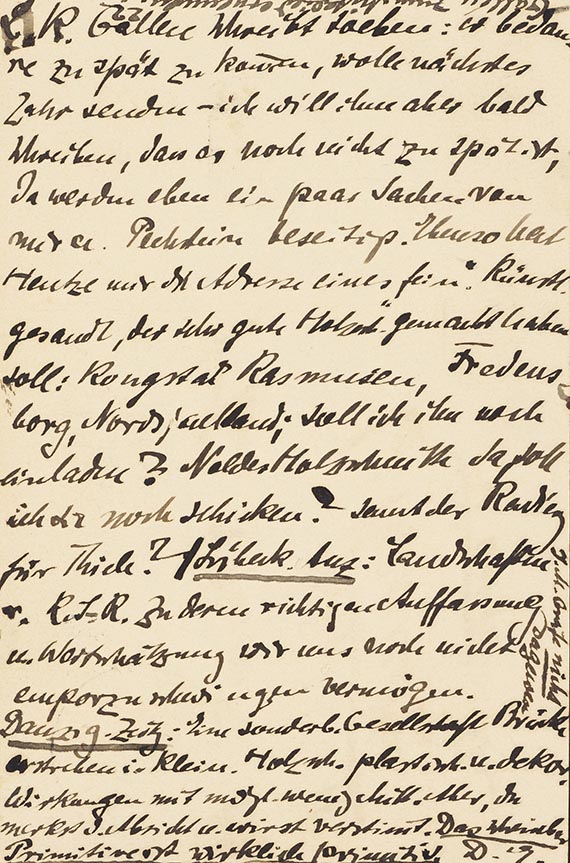 A. K. Gallen schreibt soeben: er bedau-
re zu spät zu kommen, wolle nächstes
Jahr senden – ich will ihm aber bald
schreiben, dass es noch nicht zu spät ist,
Da werden eben ein paar Sachen von
mir u. Pechstein beseitigt. Ebenso hat
Hentze mir die Adresse eines fein. Künstl.
gesandt, der sehr gute Holzsch. gemacht haben
soll: Kongstad Rasmusen, Fredens
borg, Nordsjaelland; soll ich ihn noch
einladen? Noldes Holzschnitte da soll
ich dir noch schicken? samt der Radierg
für Thiele? / Lübeck. Anz: Landschaften
v. K. S-R. zu deren richtigen Auffassung
u. Wertschätzung wir uns noch nicht
emporzuschwingen vermögen.
Danzig. Zeitg: Eine sonderb. Gesellschaft Brücke
erstreben i. klein. Holzsch. plastisch. u. dekor.
Wirkungen mit mögl. wenig Mitt. Aber, du
merkst d. Absicht u. wirst verstimt. Das scheinbar
Primitive ist wirklich primitiv. D